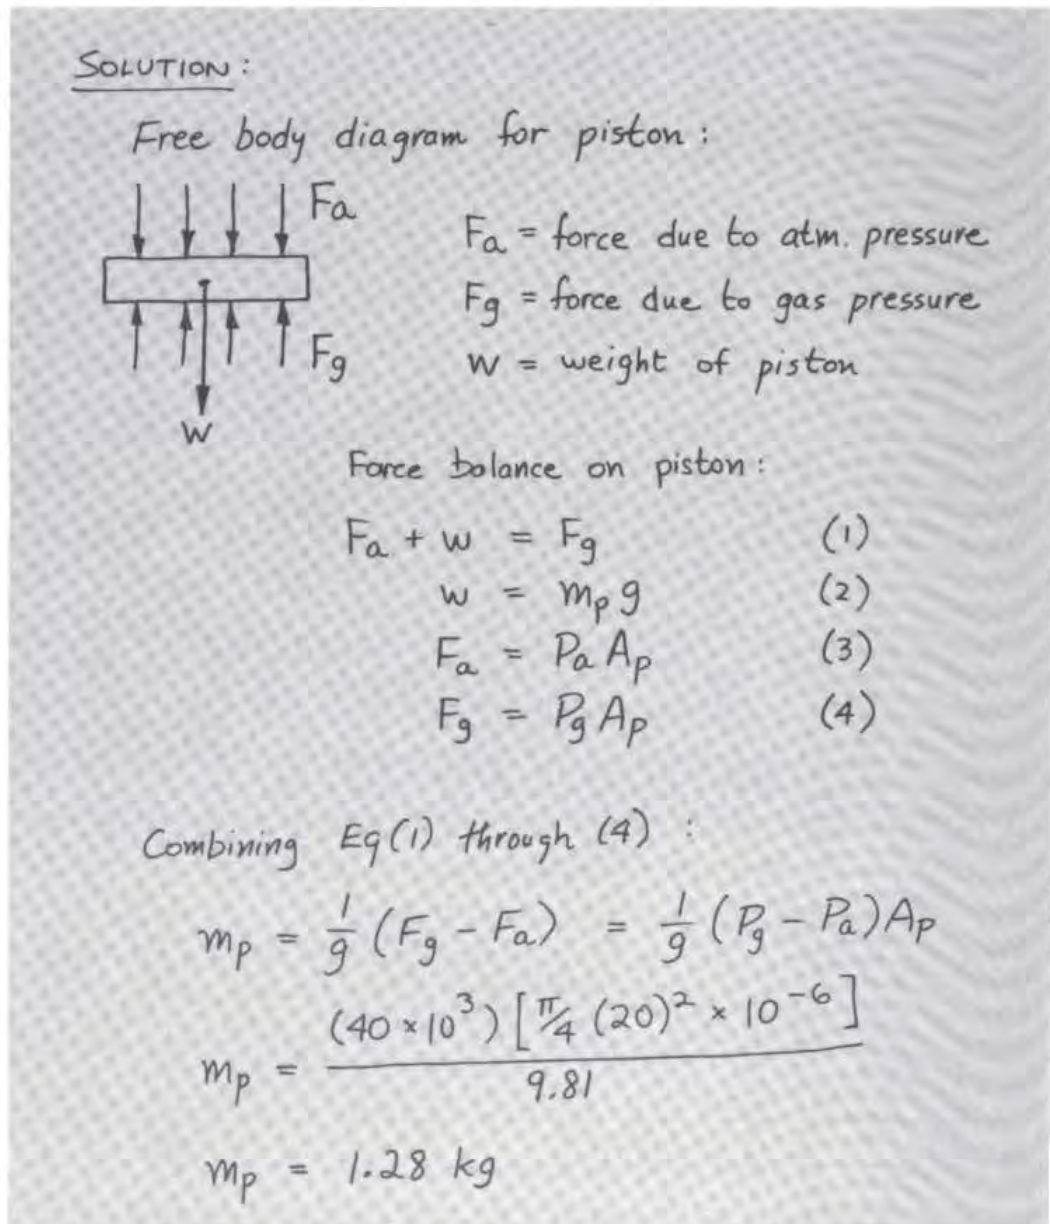 SOLUTION :
Free body diagram for piston :
Fa
Fa = force due to atm. pressure
Fg = force due to gas pressure
Fg
W = weight of piston
W
Force balance on piston :
Fa + w = Fg (1)
w = mp g (2)
Fa = Pa Ap (3)
Fg = Pg Ap (4)
Combining Eq (1) through (4) :
mp = 1/g (Fg - Fa) = 1/g (Pg - Pa) Ap
mp = (40 × 10³) [π/4 (20)² × 10⁻⁶] / 9.81
mp = 1.28 kg